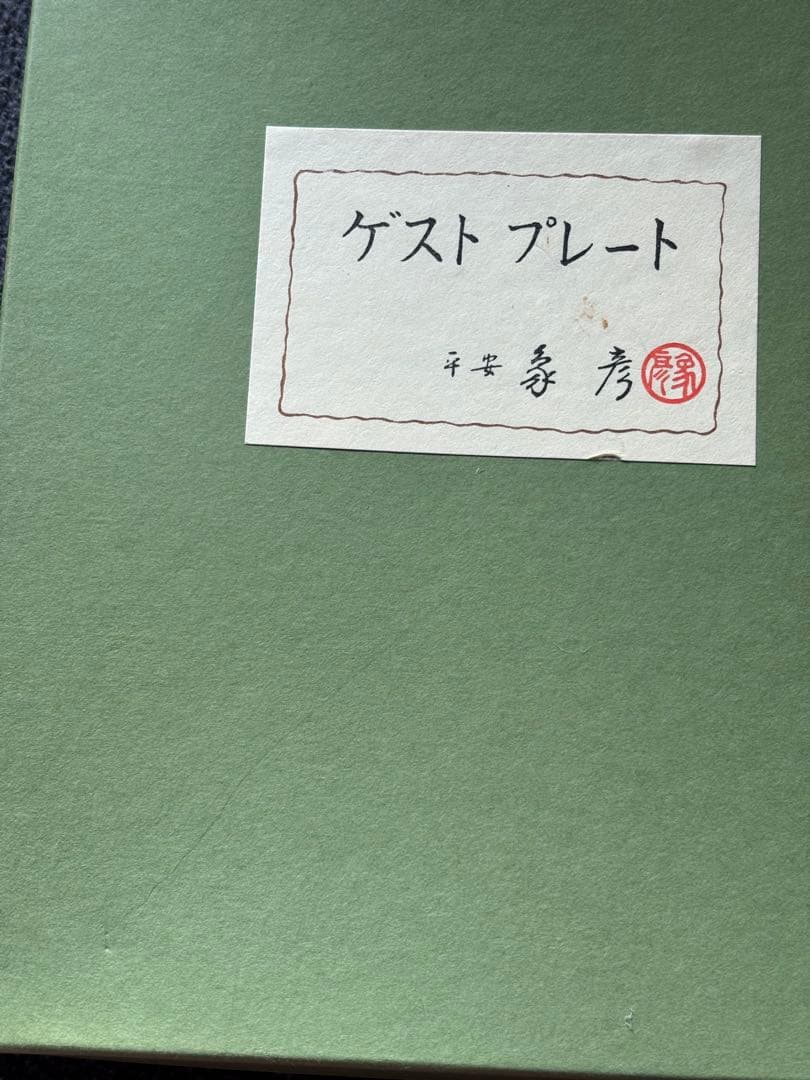 ゲスト プレート
平安 象彦